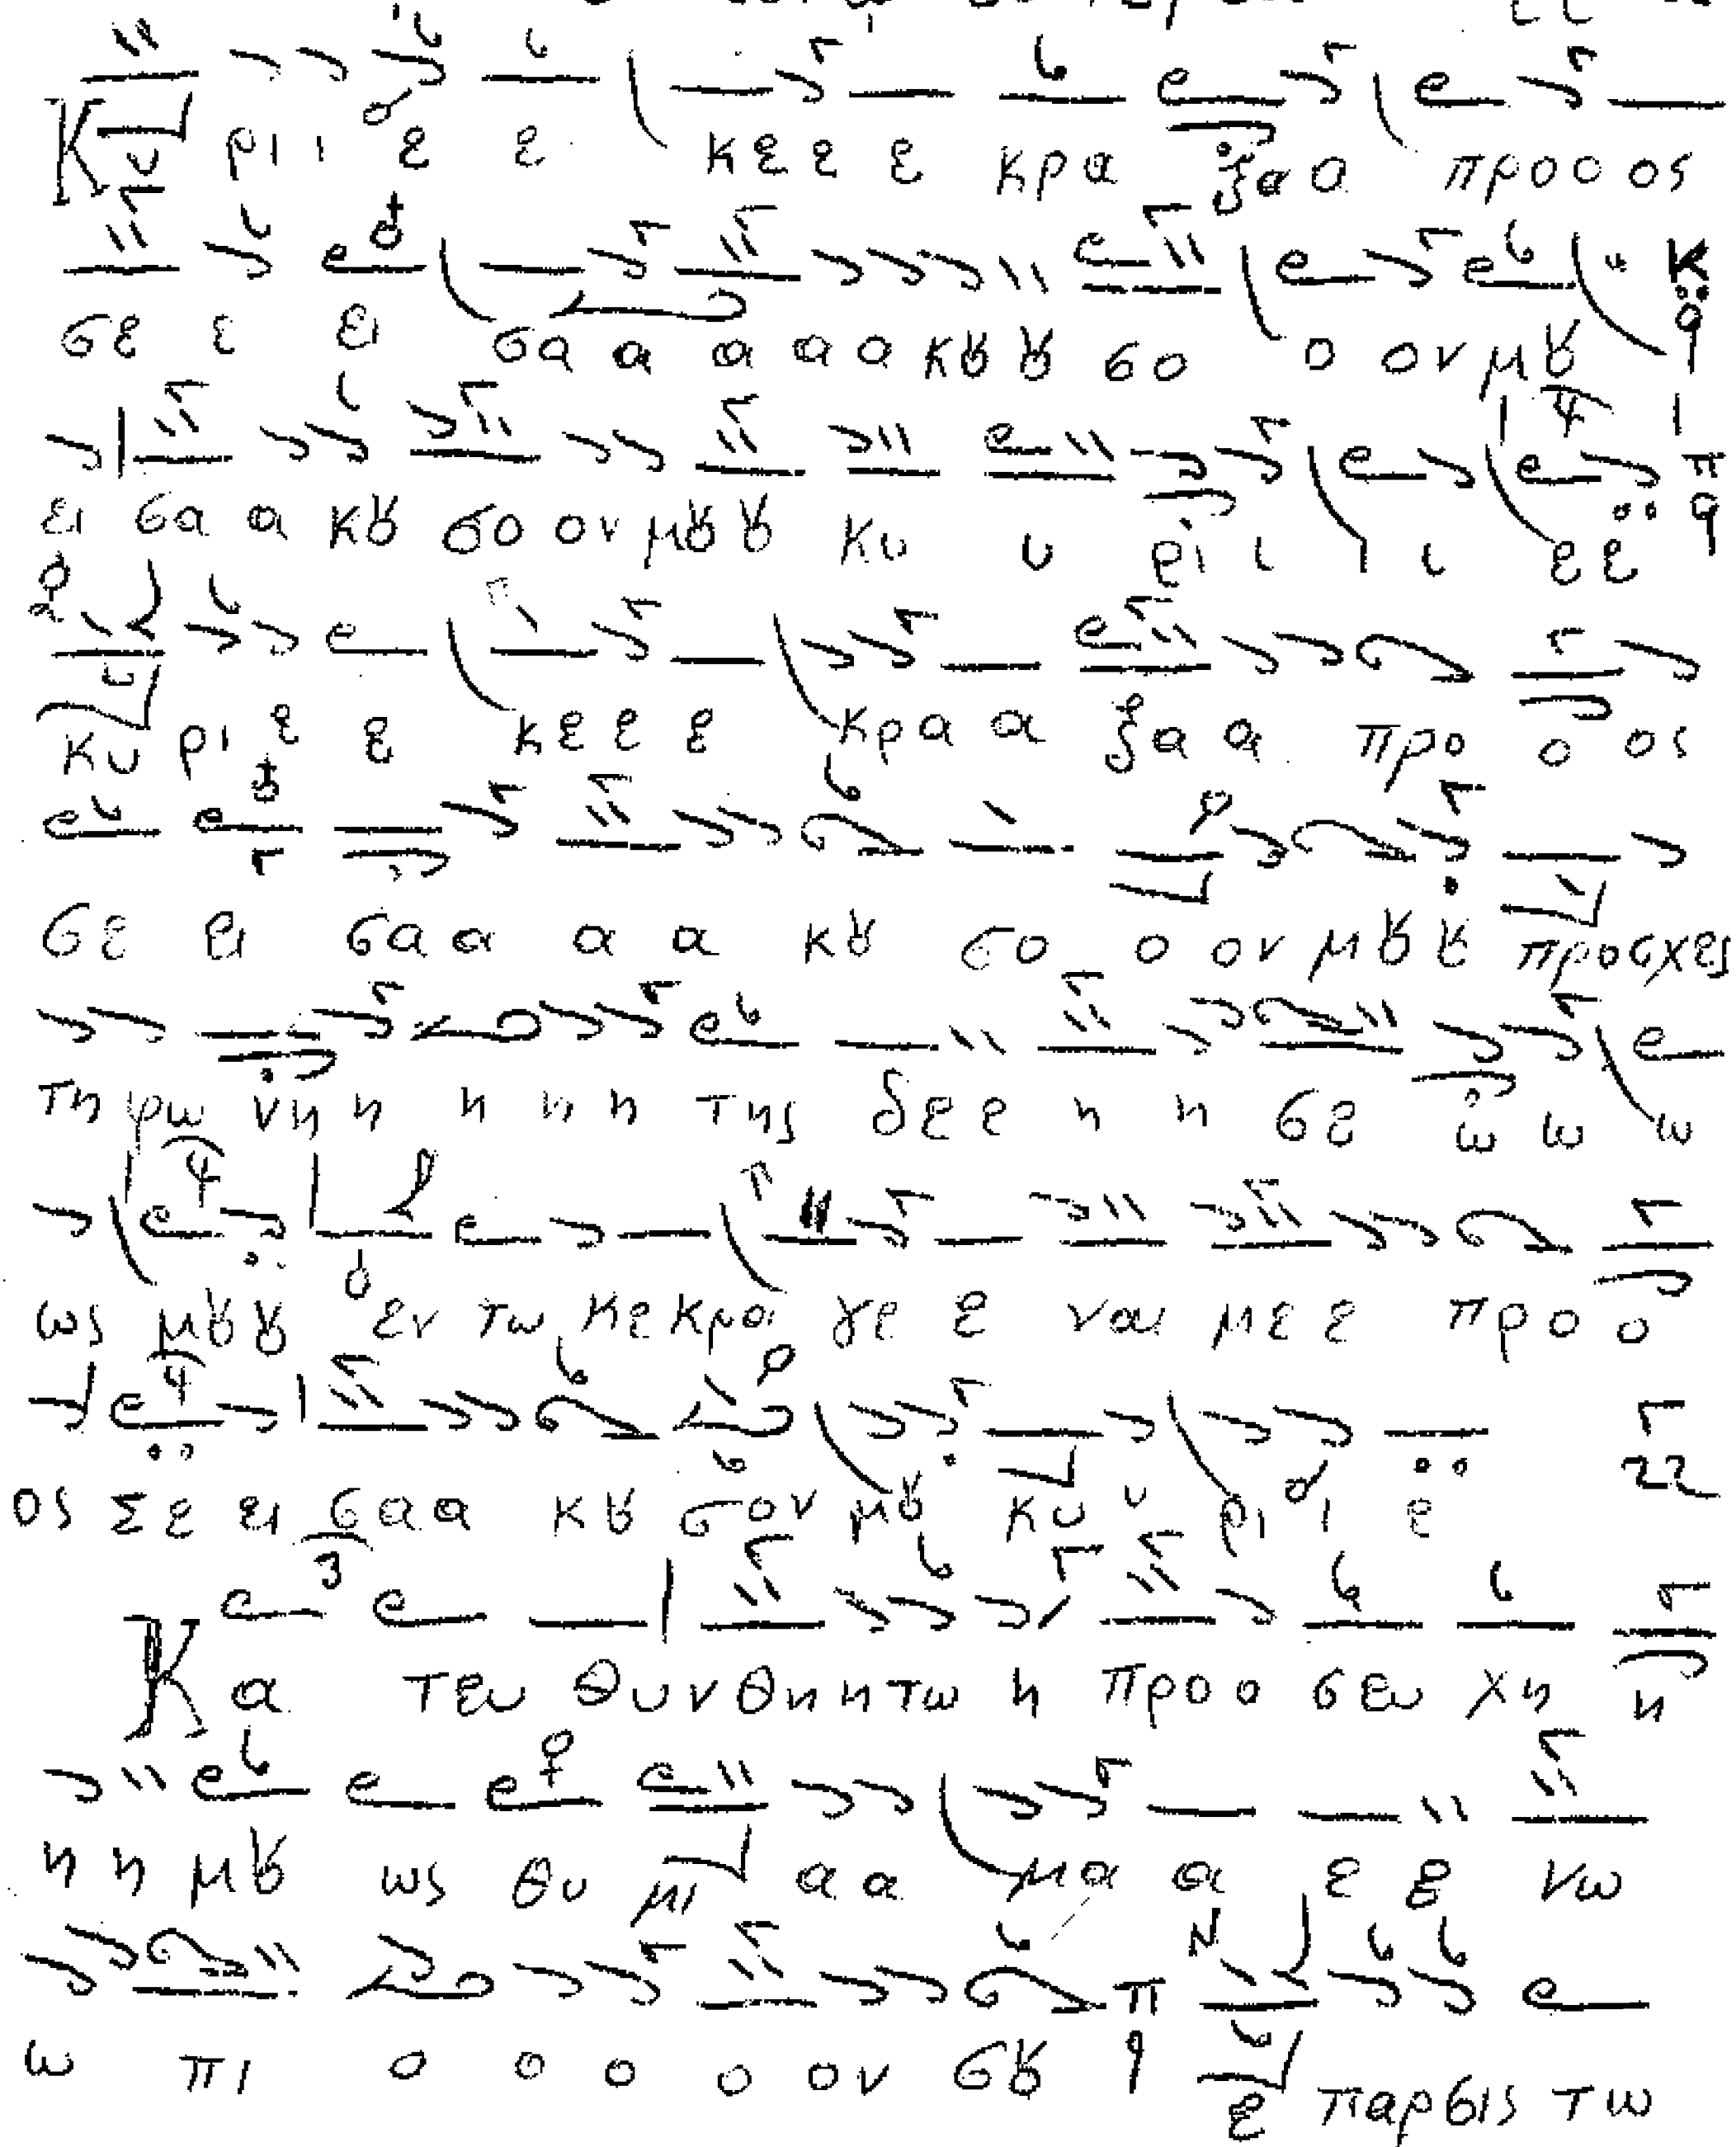 Κυ ρι ι ε ε κε ε ε κρα ξα α προ ο ος
σε ε ει σα α α α α κȣ ȣ σο ο ον μȣ
ει σα α κȣ σο ον μȣ ȣ κυ υ ρι ι ι ι ε ε
κυ ρι ε ε κε ε ε κρα α ξα α προ ο ος
σε ει σα α α α κȣ σο ο ον μȣ ȣ προσχες
τη φω νη η η η η της δε ε η η σε ω ω ω
ως μȣ ȣ εν τω κε κρα γε ε ναι με ε προ ο
ος Σε ει σα α κȣ σον μȣ κυ υ ρι ι ε
Κα τευ θυν θη η τω η προ ο σευ χη η
η η μȣ ως θυ μι α α μα α ε ε νω
ω πι ο ο ο ο ον σȣ ε παρσις τω